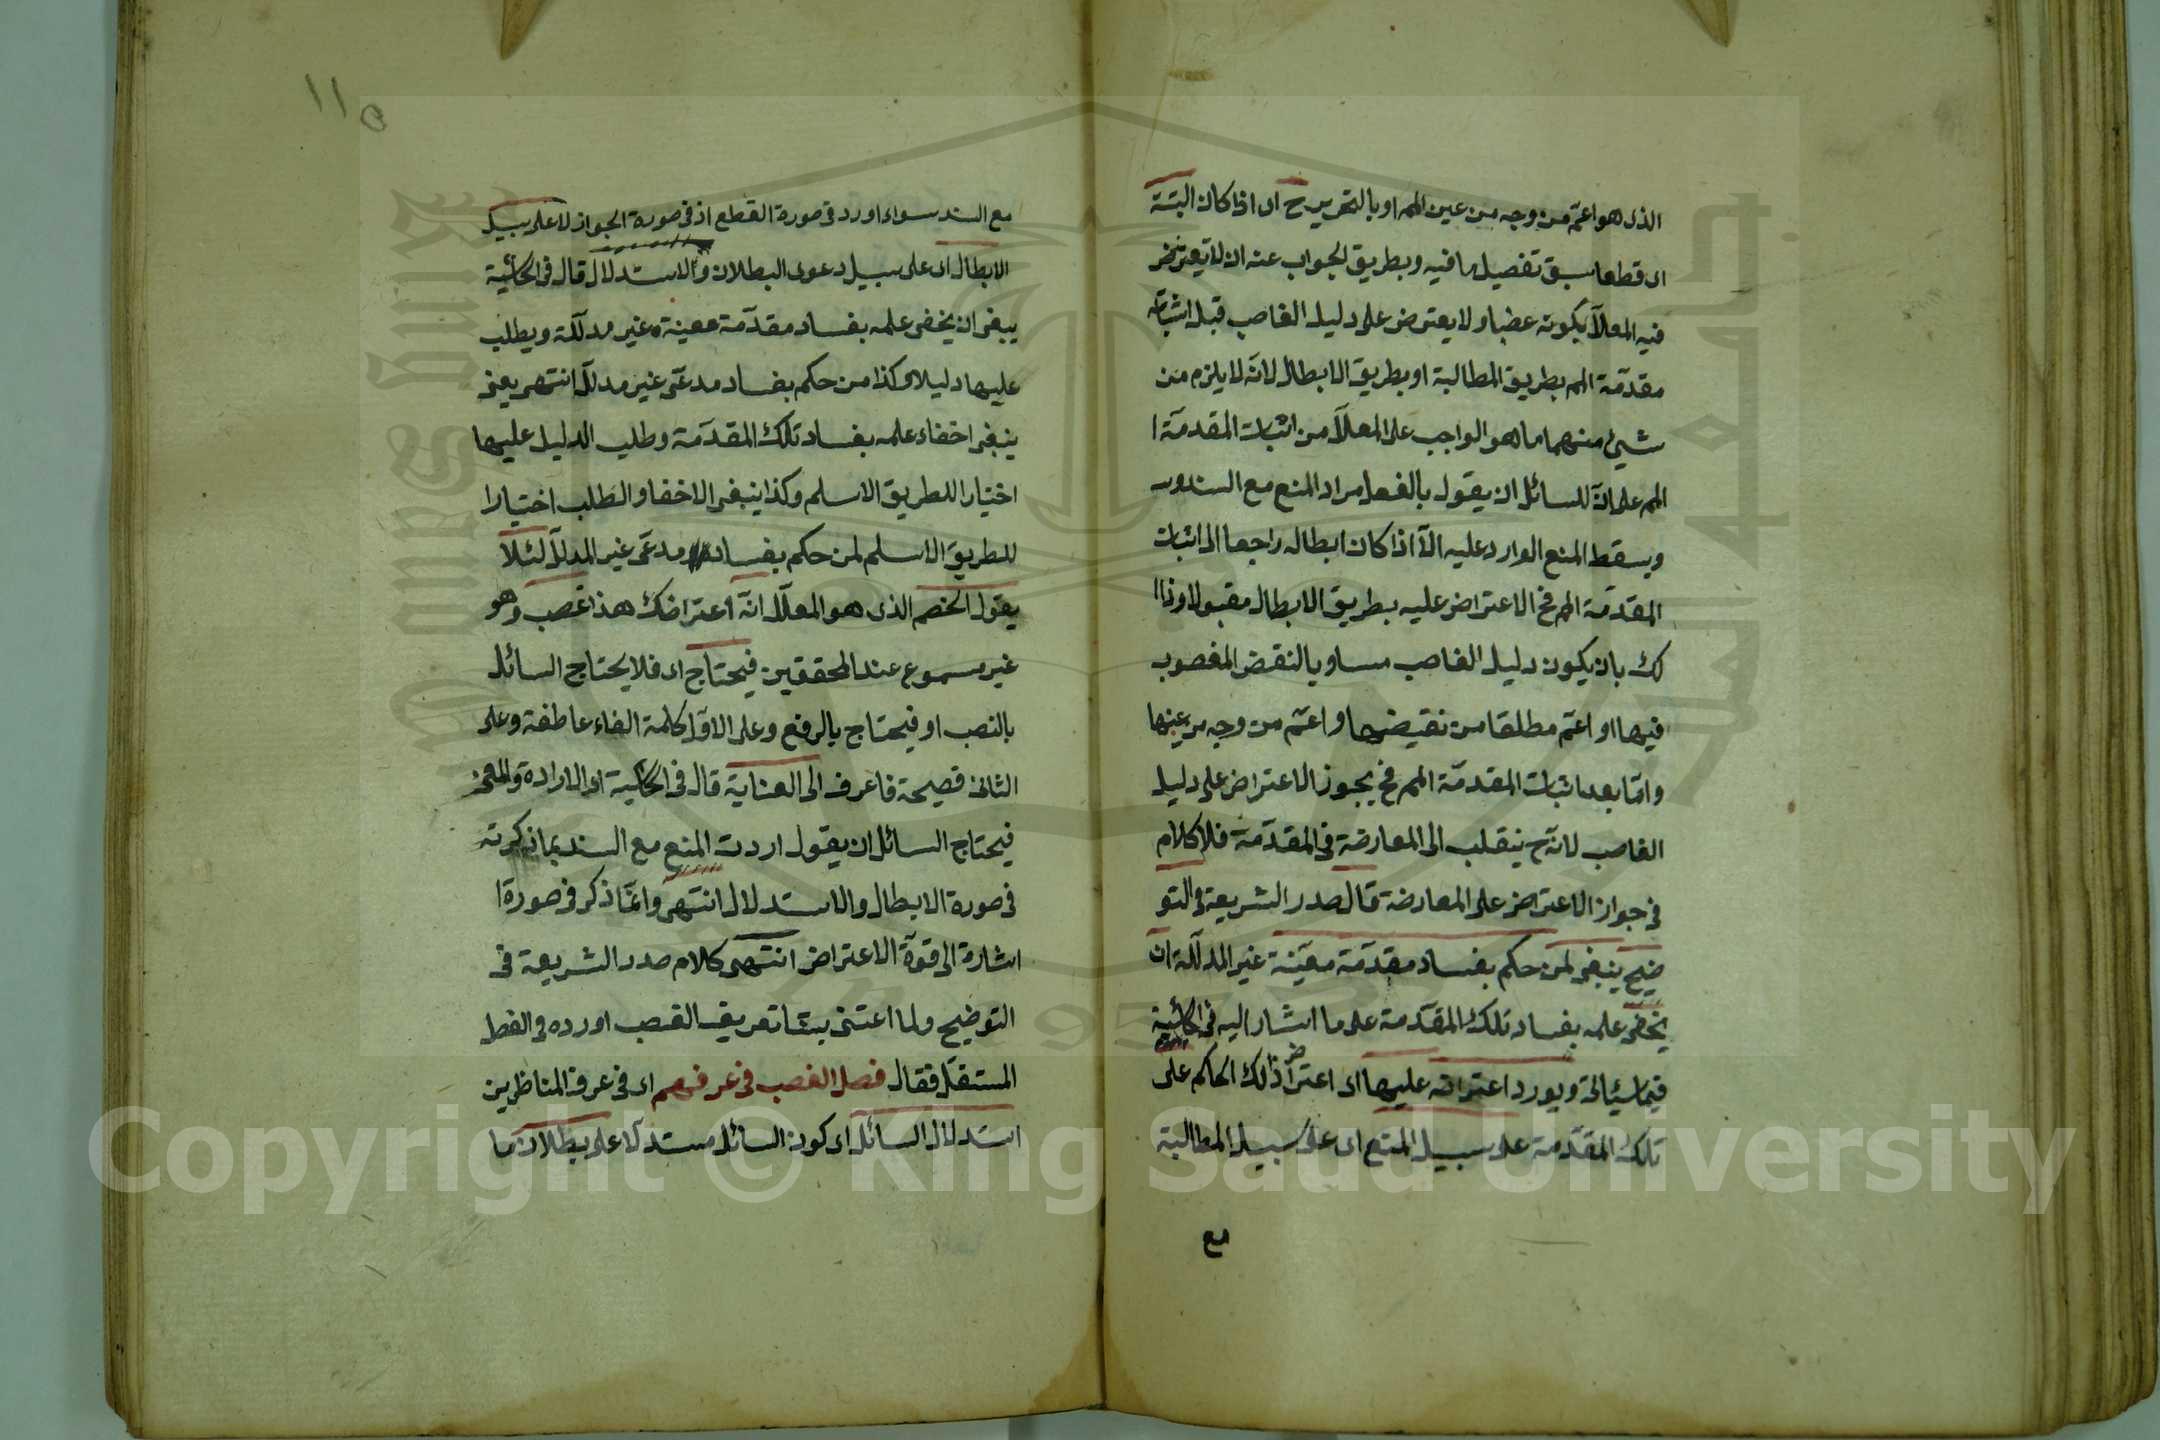 الذى هو اعم من وجه من عين المم او بالتحرير ح اى اذا كان البتة
اى قطعا سبق تفصيل ما فيه وبطريق الجواب عنه ان لا يتعرض
فيه المعلل بكونه غصبا ولا يعترض على دليل الغاصب قبل اثبات
مقدمة المم بطريق المطالبة او بطريق الابطال لانه لا يلزم من
شيئ منهما ما هو الواجب على المعلل من اثبات المقدمة ا
المم على ان للسائل ان يقول بالفعل مراد المنع مع السند
ويسقط المنع الوارد عليه الا اذا كان ابطاله راجعا الى اثبات
المقدمة المم فح الاعتراض عليه بطريق الابطال مقبول وذا ا
لك بان يكون دليل الغاصب مساويا لنقض المغصوب
فيها او اعم مطلقا من نقيضها او اعم من وجه من عينها
واما بعد اثبات المقدمة المم فح يجوز الاعتراض على دليل
الغاصب لانه ح ينقلب الى المعارضة فى المقدمة فلا كلام
فى جواز الاعتراض على المعارضة قال صدر الشريعة فى التو
ضيح ينبغى لمن حكم بفساد مقدمة معينة غير المدللة ان
يخفى علمه بفساد تلك المقدمة على ما اشار اليه فى الحاشية
فيما سيأتى ويورد اعتراضه عليها اى اعتراض ذلك الحاكم على
تلك المقدمة على سبيل المنع اى على سبيل المطالبة
مع
١١٥
مع السند سواء اورد فى صورة القطع اذ فى صورة الجواز لا على سبيل
الابطال اى على سبيل دعوى البطلان والاستدلال قال فى الحاشية
ينبغى ان يخفى علمه بفساد مقدمة معينة غير مدللة ويطلب
عليها دليلا وكذا من حكم بفساد مدعى غير مدلل انتهى يعنى
ينبغى اخفاء علمه بفساد تلك المقدمة وطلب الدليل عليها
اختيارا للطريق الاسلم وكذا ينبغى الاخفا والطلب اختيارا
للطريق الاسلم لمن حكم بفساد مدعى غير المدلل لئلا
يقول الخصم الذى هو المعلل انه اعتراضك هذا غصب وهو
غير مسموع عند المحققين فيحتاج اى فلا يحتاج السائل
بالنصب او فيحتاج بالرفع وعلى الاول كلمة الفاء عاطفة وعلى
الثانى فصيحة فاعرف الى العناية قال فى الحاشية اى الارادة والمعنى
فيحتاج السائل ان يقول اردت المنع مع السند بما ذكرته
فى صورة الابطال والاستدلال انتهى وانما ذكر فى صورة ا
اشارة الى قوة الاعتراض انتهى كلام صدر الشريعة فى
التوضيح ولما اعتنى بيتا تعريف الغصب اورده فى الفصل
المستقل فقال فصل الغصب فى عرفهم اى فى عرف المناظرين
استدلال السائل اى كون السائل مستدلا على بطلان ما